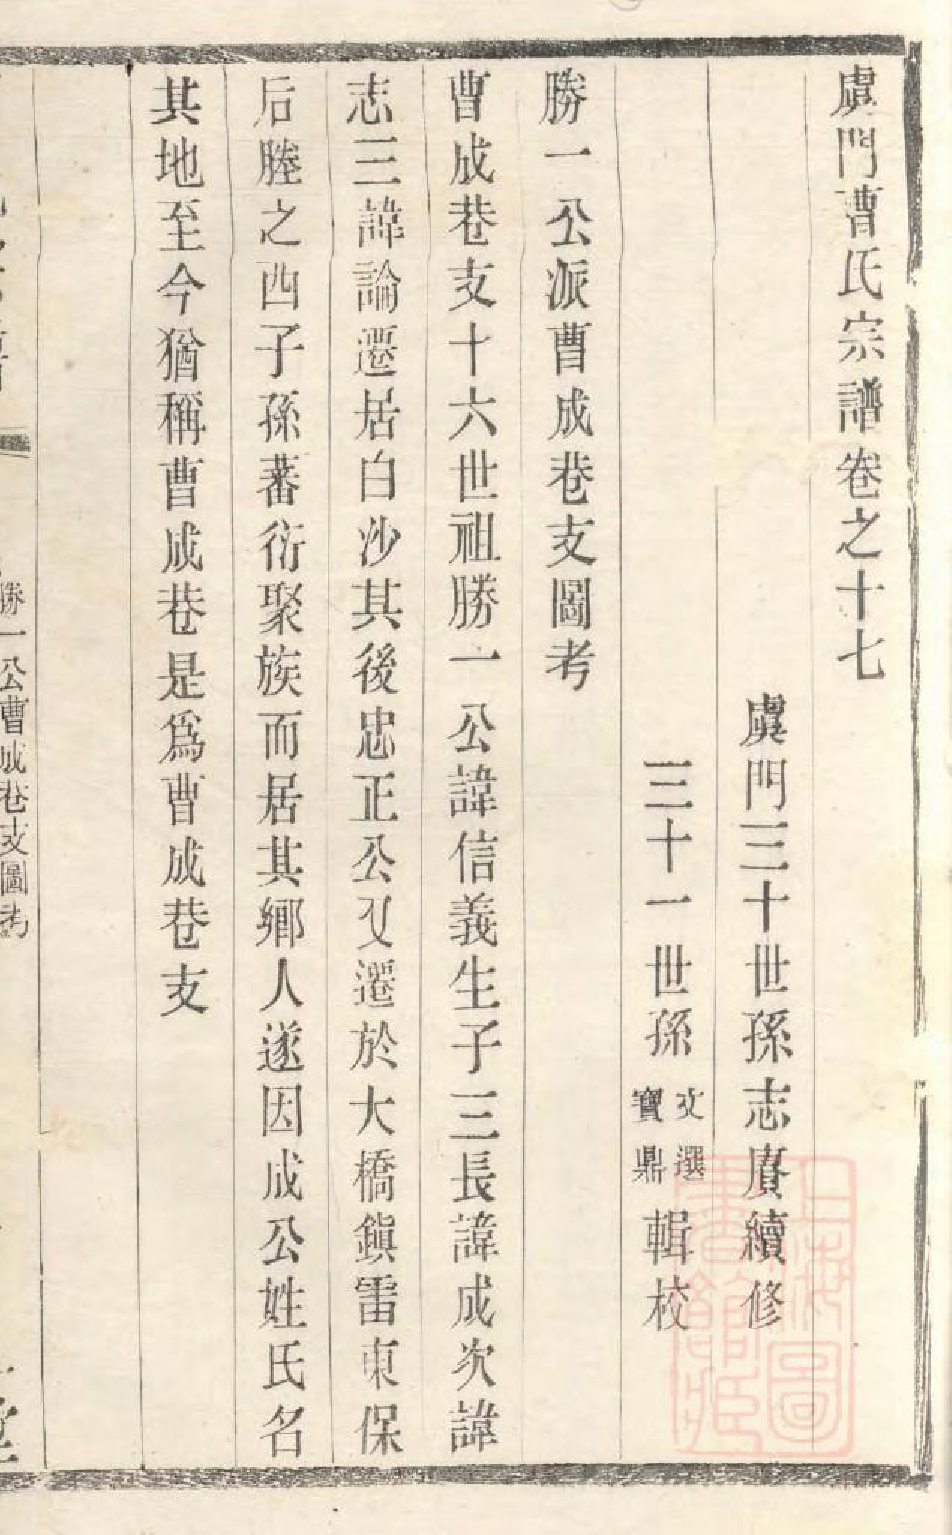 虞門曹氏宗譜卷之十七
虞門三十世孫志賡續修
三十一世孫文選寶鼎輯校
勝一公派曹成巷支圖考
曹成巷支十六世祖勝一公諱信義生子三長諱成次諱
志三諱論遷居白沙其後忠正公又遷於大橋鎭雷東保
后塍之西子孫蕃衍聚族而居其鄉人遂因成公姓氏名
其地至今猶稱曹成巷是爲曹成巷支
勝一公曹成巷支圖考
堂
上海圖書館藏